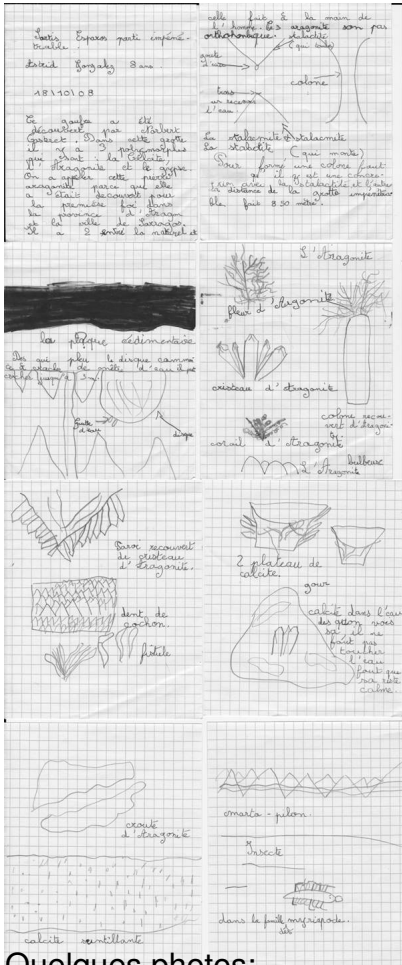 Sortie Esparos parti impéné-
trable.
Astrid Gonzalez 8 ans.
18/10/08
Ce goufre a été
découvert par Norbert
Casteret. Dans cette grotte
il y a 3
que sont : la Calcite,
l'Aragonite et le gypse.
On a appeler cette
aragonite parce que elle
a était découvert pour
la première foi dans
la province d'Aragon
et la ville de
Il a 2 entré la naturel et
celle fait à la main de
l'homme. Les aragonite son pas
orthorhombique. stalactite
(qui tombe)
goutte
d'eau
colone
trou
un recevoir
l'eau
La stalacmite
La stalactite (qui monte)
Pour formé une colone faut
qu'il y est une concré-
tion avec la stalactite et l'autre
La distance de la grotte impénétra-
ble fait 850 mètre.
la plaque sédimentaire
Des qui pleu le disque comme
goutte
d'eau
disque
L'Aragonite
fleur d'Aragonite
cristeau d'Aragonite
colone recou-
vert d'Aragoni-
te
corail d'Aragonite
bulbeuse
L'Aragonite
Paroi recouvert
de cristeau
d'Aragonite.
dent de
cochon.
fistule
2 plateau de
calcite.
gour
calcite dans l'eau
des qu'on vois
sa il ne
faut pas
toucher
l'eau
faut que
sa reste
calme.
croute
d'Aragonite
calcite sintillante
marto-pilon.
Insecte
dans la famille myriapode.
Quelques photos: